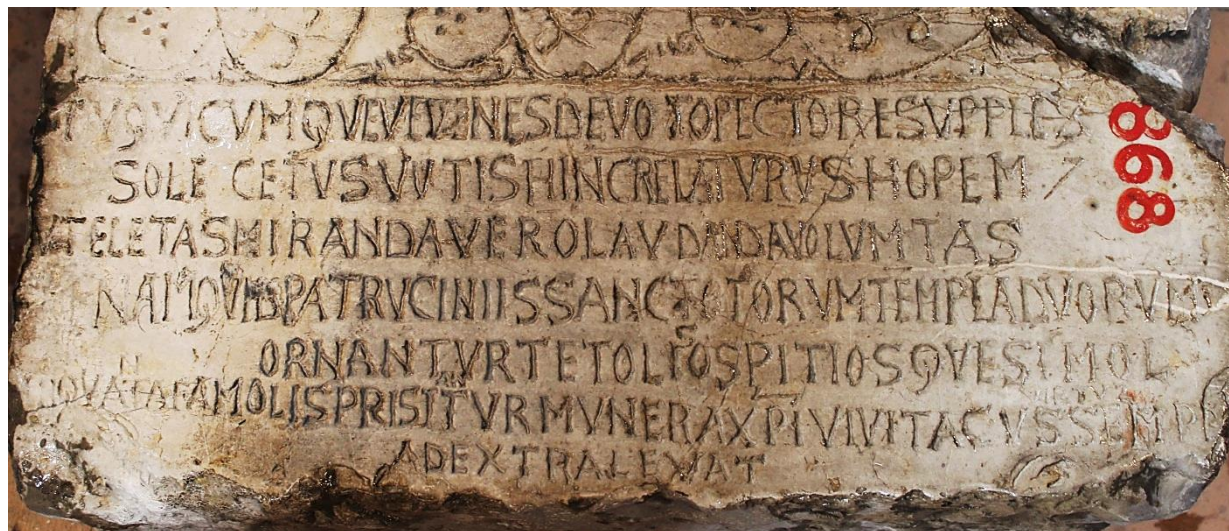 TUQVICVMQVEVEVENESDEVOXOPECTORESVPPLEX
SOLE CETVSVVTISHINCRELATVRVSHOPEM
868
TELETASMIRANDAVEROLAVDANDAVOLVMTAS
NAMQVIBPATRVCINIISSANCTOTORVMTEMPLADVORVM
ORNANTVRTETOLIOSPITIOSQVESIMOL
FAMOLISPRISTANTVRMVNERAXPI SEMPER
ADEXTRALEVAT